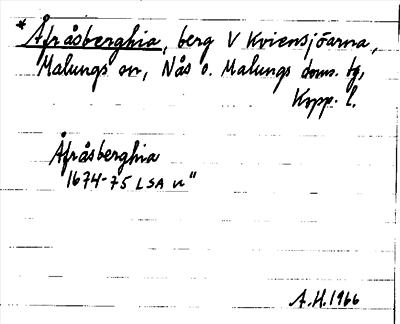 * Åfråsberghia, berg V Kviensjöarna,
Malungs sn, Nås o. Malungs doms. tg,
Kopp. l.
Åfråsberghia
1674-75 LSA n"
A.H. 1966